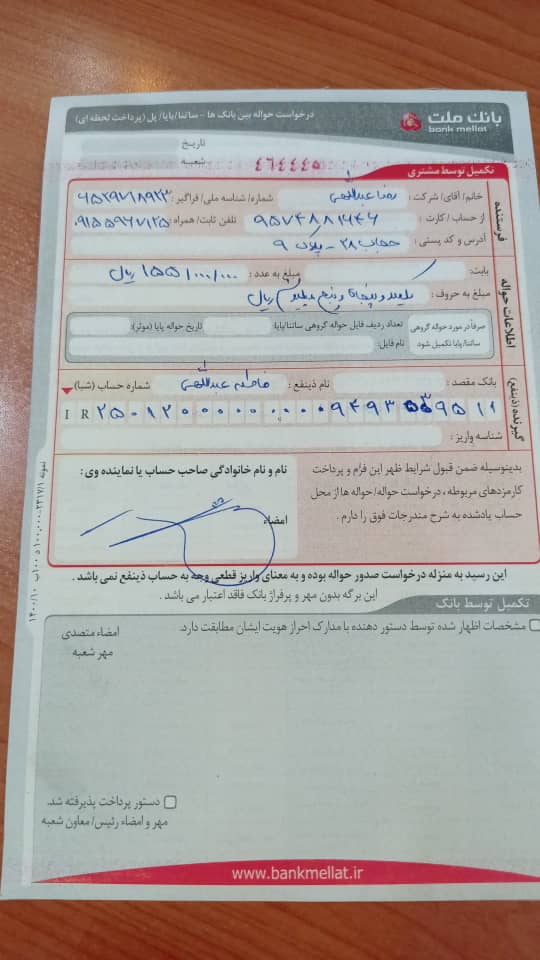 بانک ملت
bank mellat
درخواست حواله بین بانک ها - ساتنا/پایا/ پل (پرداخت لحظه ای)
تاریخ
شعبه ۴۶۴۴۴۵
تکمیل توسط مشتری
فرستنده
خانم/آقای/ شرکت : رضا عبداللهی شماره/ شناسه ملی/ فراگیر :
از حساب / کارت : تلفن ثابت/ همراه :
آدرس و کد پستی : حجاب ۲۸ - پلاک ۹
اطلاعات حواله
بابت: مبلغ به عدد : ۱۵۵/۰۰۰/۰۰۰ ریال
مبلغ به حروف : یکصد و پنجاه و پنج میلیون ریال
صرفاً در مورد حواله گروهی ساتنا/پایا تکمیل شود.
تعداد ردیف فایل حواله گروهی ساتنا/پایا تاریخ حواله پایا (موثر):
نام فایل:
گیرنده (ذینفع)
بانک مقصد : نام ذینفع : عبداللهی شماره حساب (شبا)
IR
شناسه واریز :
بدینوسیله ضمن قبول شرایط ظهر این فرم و پرداخت
کارمزدهای مربوطه ، درخواست حواله/ حواله ها از محل
حساب یادشده به شرح مندرجات فوق را دارم .
نام و نام خانوادگی صاحب حساب یا نماینده وی :
امضاء
این رسید به منزله درخواست صدور حواله بوده و به معنای واریز قطعی وجه به حساب ذینفع نمی باشد .
این برگه بدون مهر و پرفراژ بانک فاقد اعتبار می باشد .
تکمیل توسط بانک
مشخصات اظهار شده توسط دستور دهنده با مدارک احراز هویت ایشان مطابقت دارد.
امضاء متصدی
مهر شعبه
دستور پرداخت پذیرفته شد.
مهر و امضاء رئیس/ معاون شعبه
www.bankmellat.ir